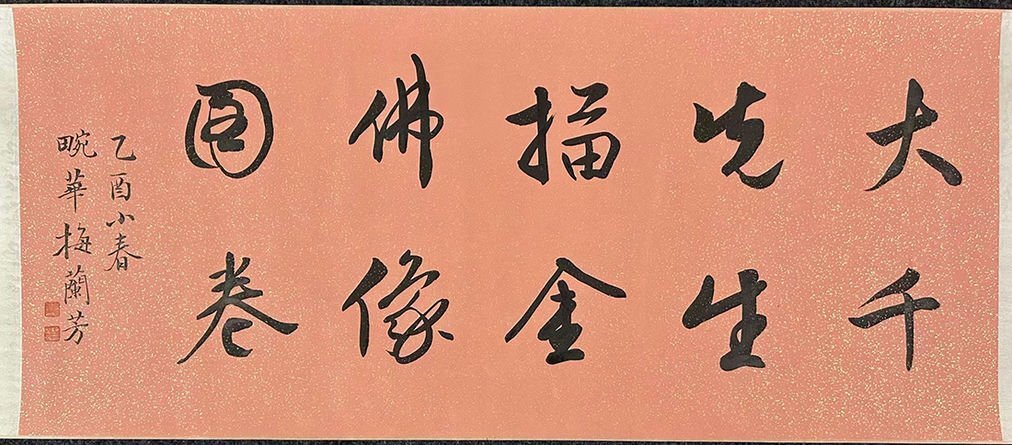 大千
先生
描金
佛像
图卷
乙酉小春
畹華梅蘭芳